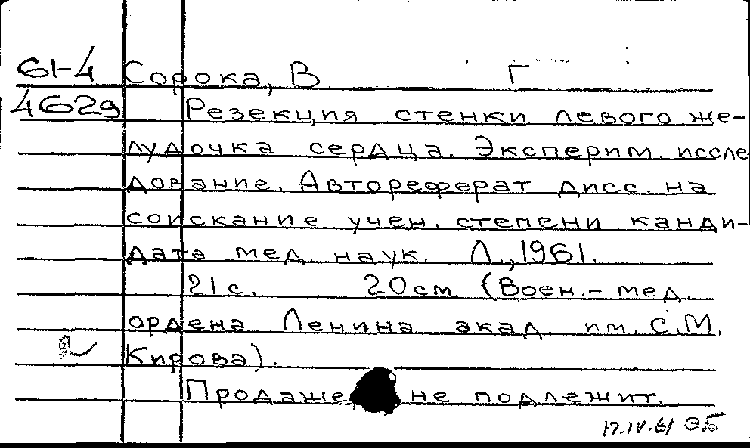 61-4 Сорока, В Г
4629 Резекция стенки левого же-
лудочка сердца. Эксперим. иссле
дование. Автореферат дисс. на
соискание учен. степени канди-
дата мед. наук. Л., 1961.
21 с. 20 см (Воен.-мед.
ордена Ленина акад. им. С.М.
Кирова).
Продаже не подлежит.
17.IV.61 ЭБ